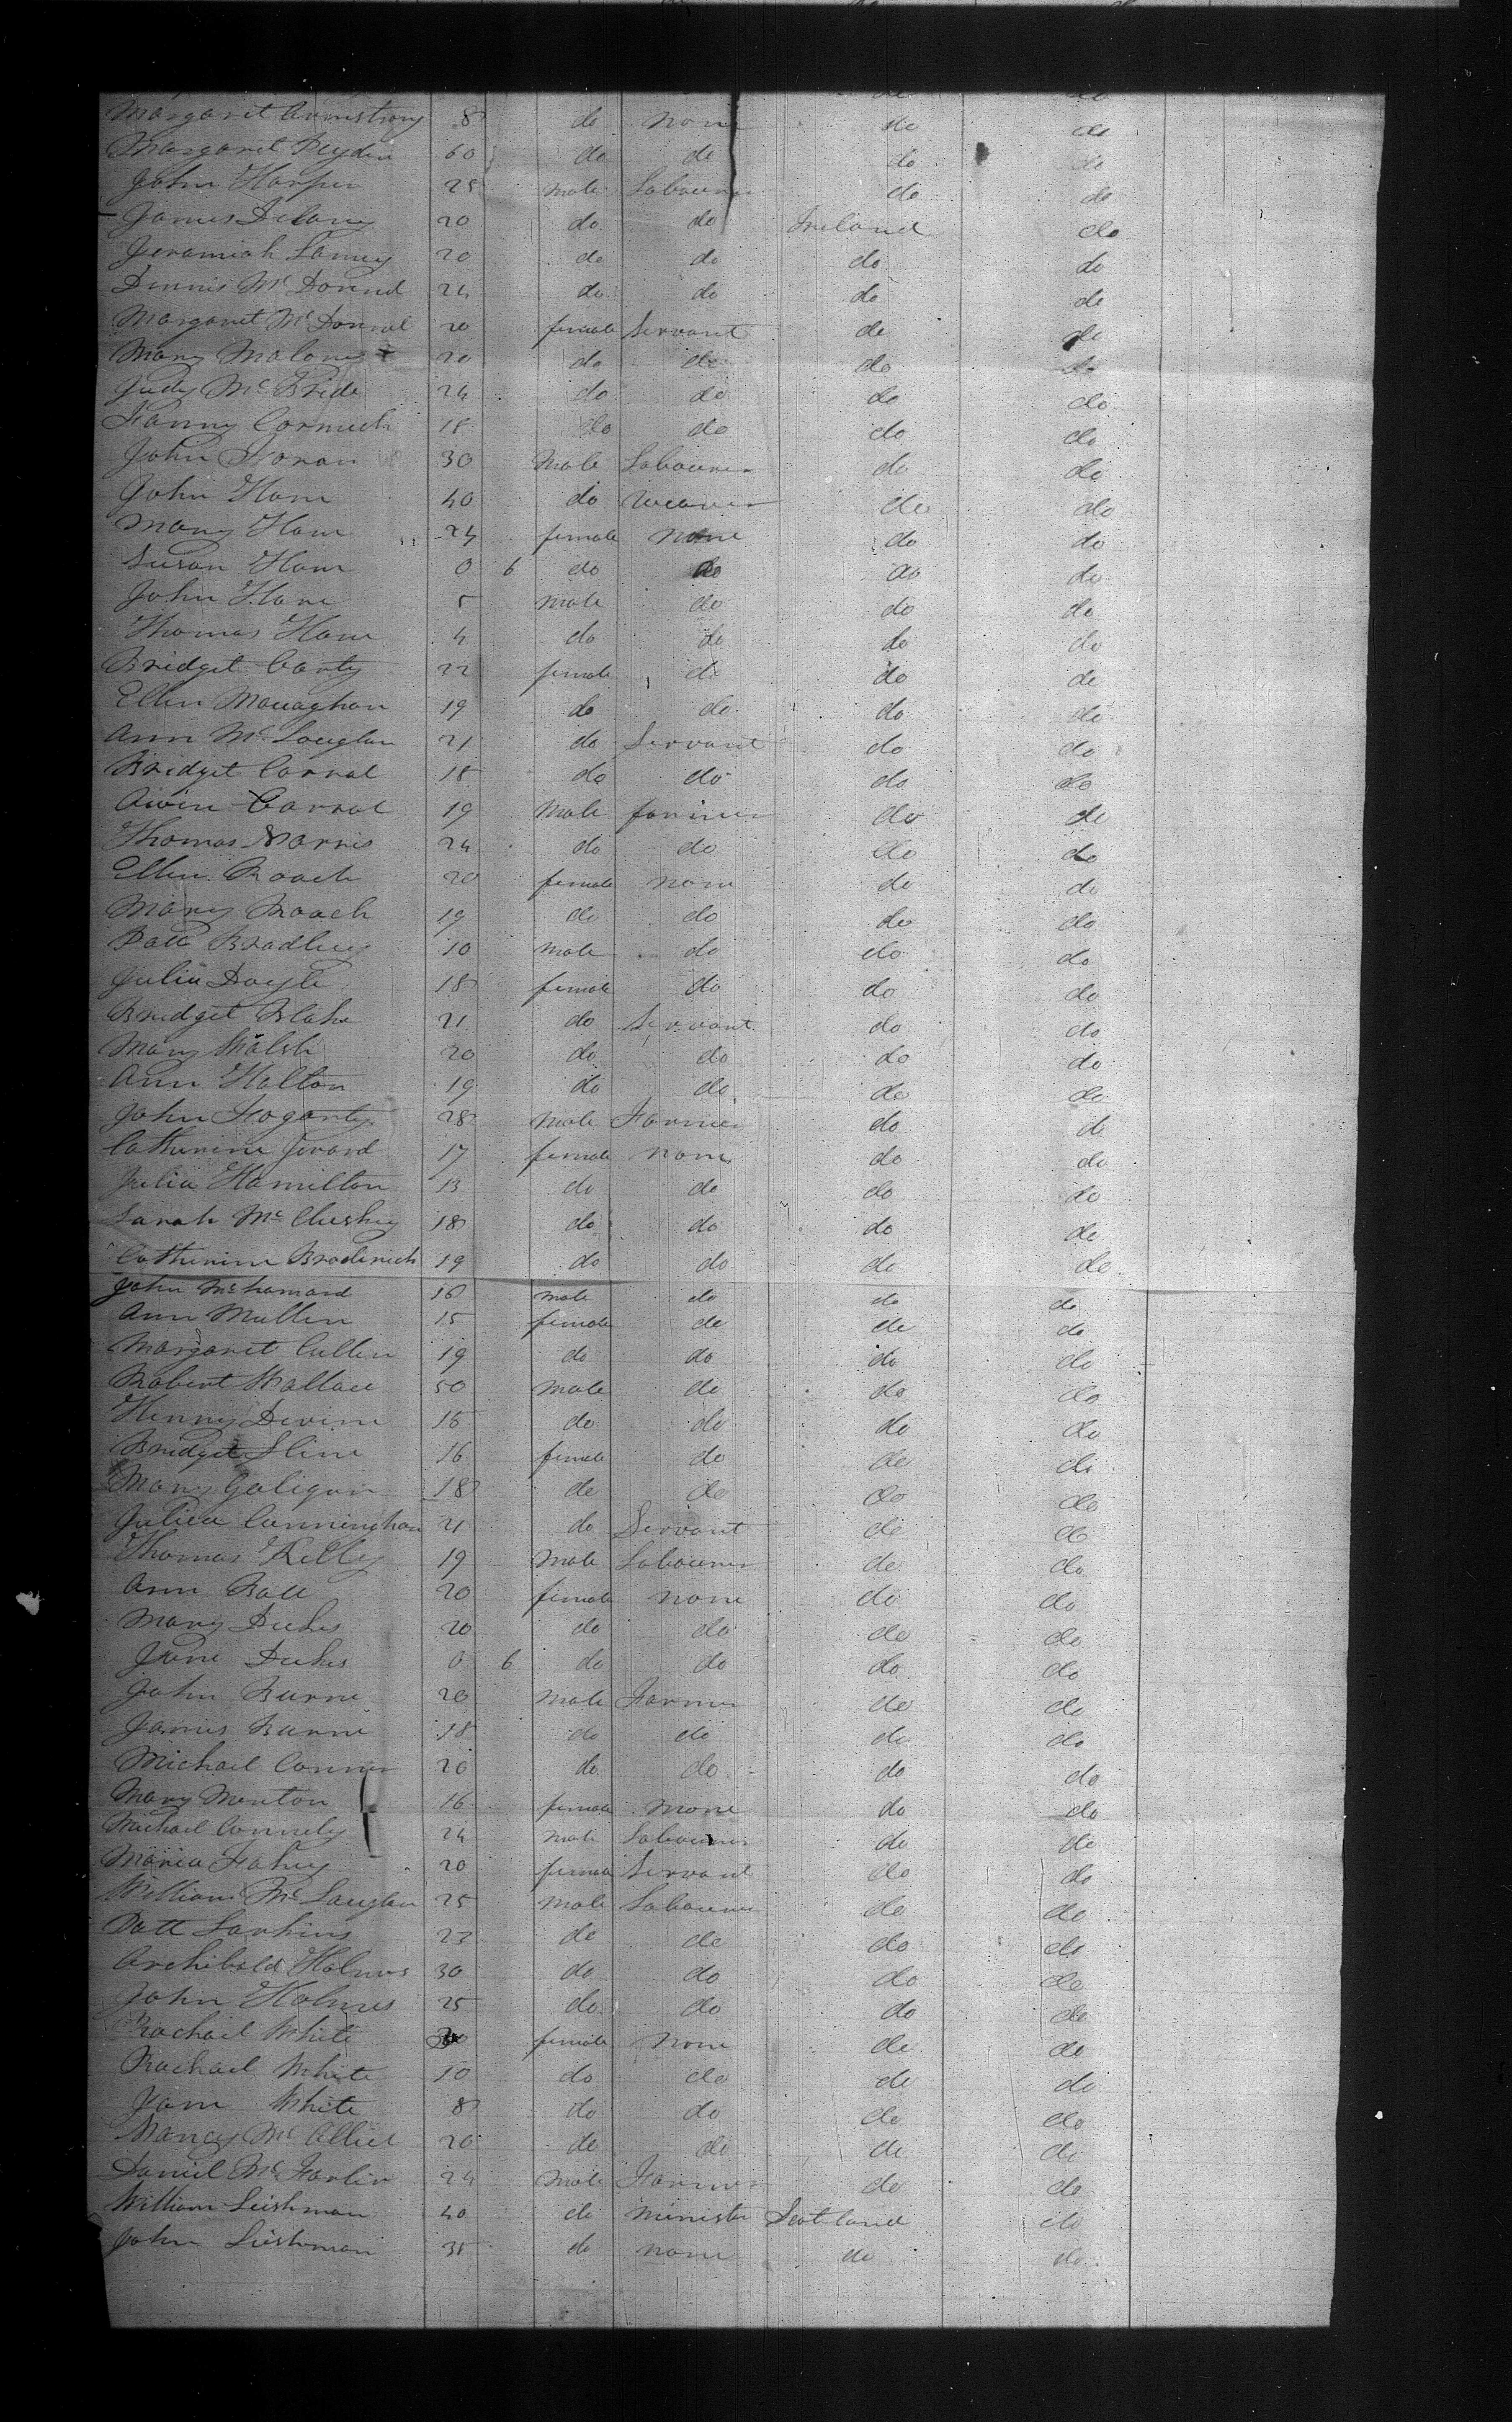 Margaret Armstrong 8 do none do do
Margaret Heyden 60 do do do do
John Harper 25 male Labourer do do
James Delany 20 do do Ireland do
Jeremiah Laney 20 do do do do
Dennis McDonnel 24 do do do do
Margaret McDonnel 20 female Servant do do
Mary Maloney 20 do do do do
Judy McBride 24 do do do do
Fanny Cormick 18 do do do do
John Foran 30 Male Labourer do do
John Ham 40 do weaver do do
Mary Ham 24 female None do do
Susan Ham 0 6 do do do do
John Ham 5 male do do do
Thomas Ham 4 do do do do
Bridget Carty 22 female do do do
Ellen Monaghan 19 do do do do
Ann McLouglan 21 do Servant do do
Bridget Carral 18 do do do do
Owen Carral 19 Male farmer do do
Thomas Norris 24 do do do do
Ellen Roach 20 female none do do
Mary Roach 19 do do do do
Patt Bradley 10 male do do do
Julia Doyle 18 female do do do
Bridget Blake 21 do Servant do do
Mary Walsh 20 do do do do
Ann Halton 19 do do do do
John Fogarty 28 male Farmer do do
Catherine Jerard 17 female none do do
Julia Hamilton 13 do do do do
Sarah McCluskey 18 do do do do
Catherine Broderick 19 do do do do
John 16 male do do do
Ann Mullen 15 female do do do
Margaret Cullen 19 do do do do
Robert Wallace 50 male do do do
Henry Devine 15 do do do do
Bridget Sline 16 female do do do
Mary Galigan 18 do do do do
Julica Cunningham 21 do Servant do do
Thomas Kelly 19 Male Labourer do do
Ann Ball 20 female none do do
Mary Dukes 20 do do do do
Jane Dukes 0 6 do do do do
John Burne 20 male Farmer do do
James Burne 18 do do do do
Michael Conner 26 do do do do
Mary Menton 16 female none do do
Michael Connely 24 male Labourer do do
Maria Fahey 20 female Servant do do
William McLauglan 25 male Labourer do do
Patt Larkins 23 do do do do
Archibald Holmes 30 do do do do
John Holmes 25 do do do do
Rachael White female none do do
Rachael White 10 do do do do
Jane White 8 do do do do
Nancy McAllict 20 do do do do
Daniel McFarlin 24 male Farmer do do
William Leishman 40 do minister Scotland do
John Lieshman 35 do none do do